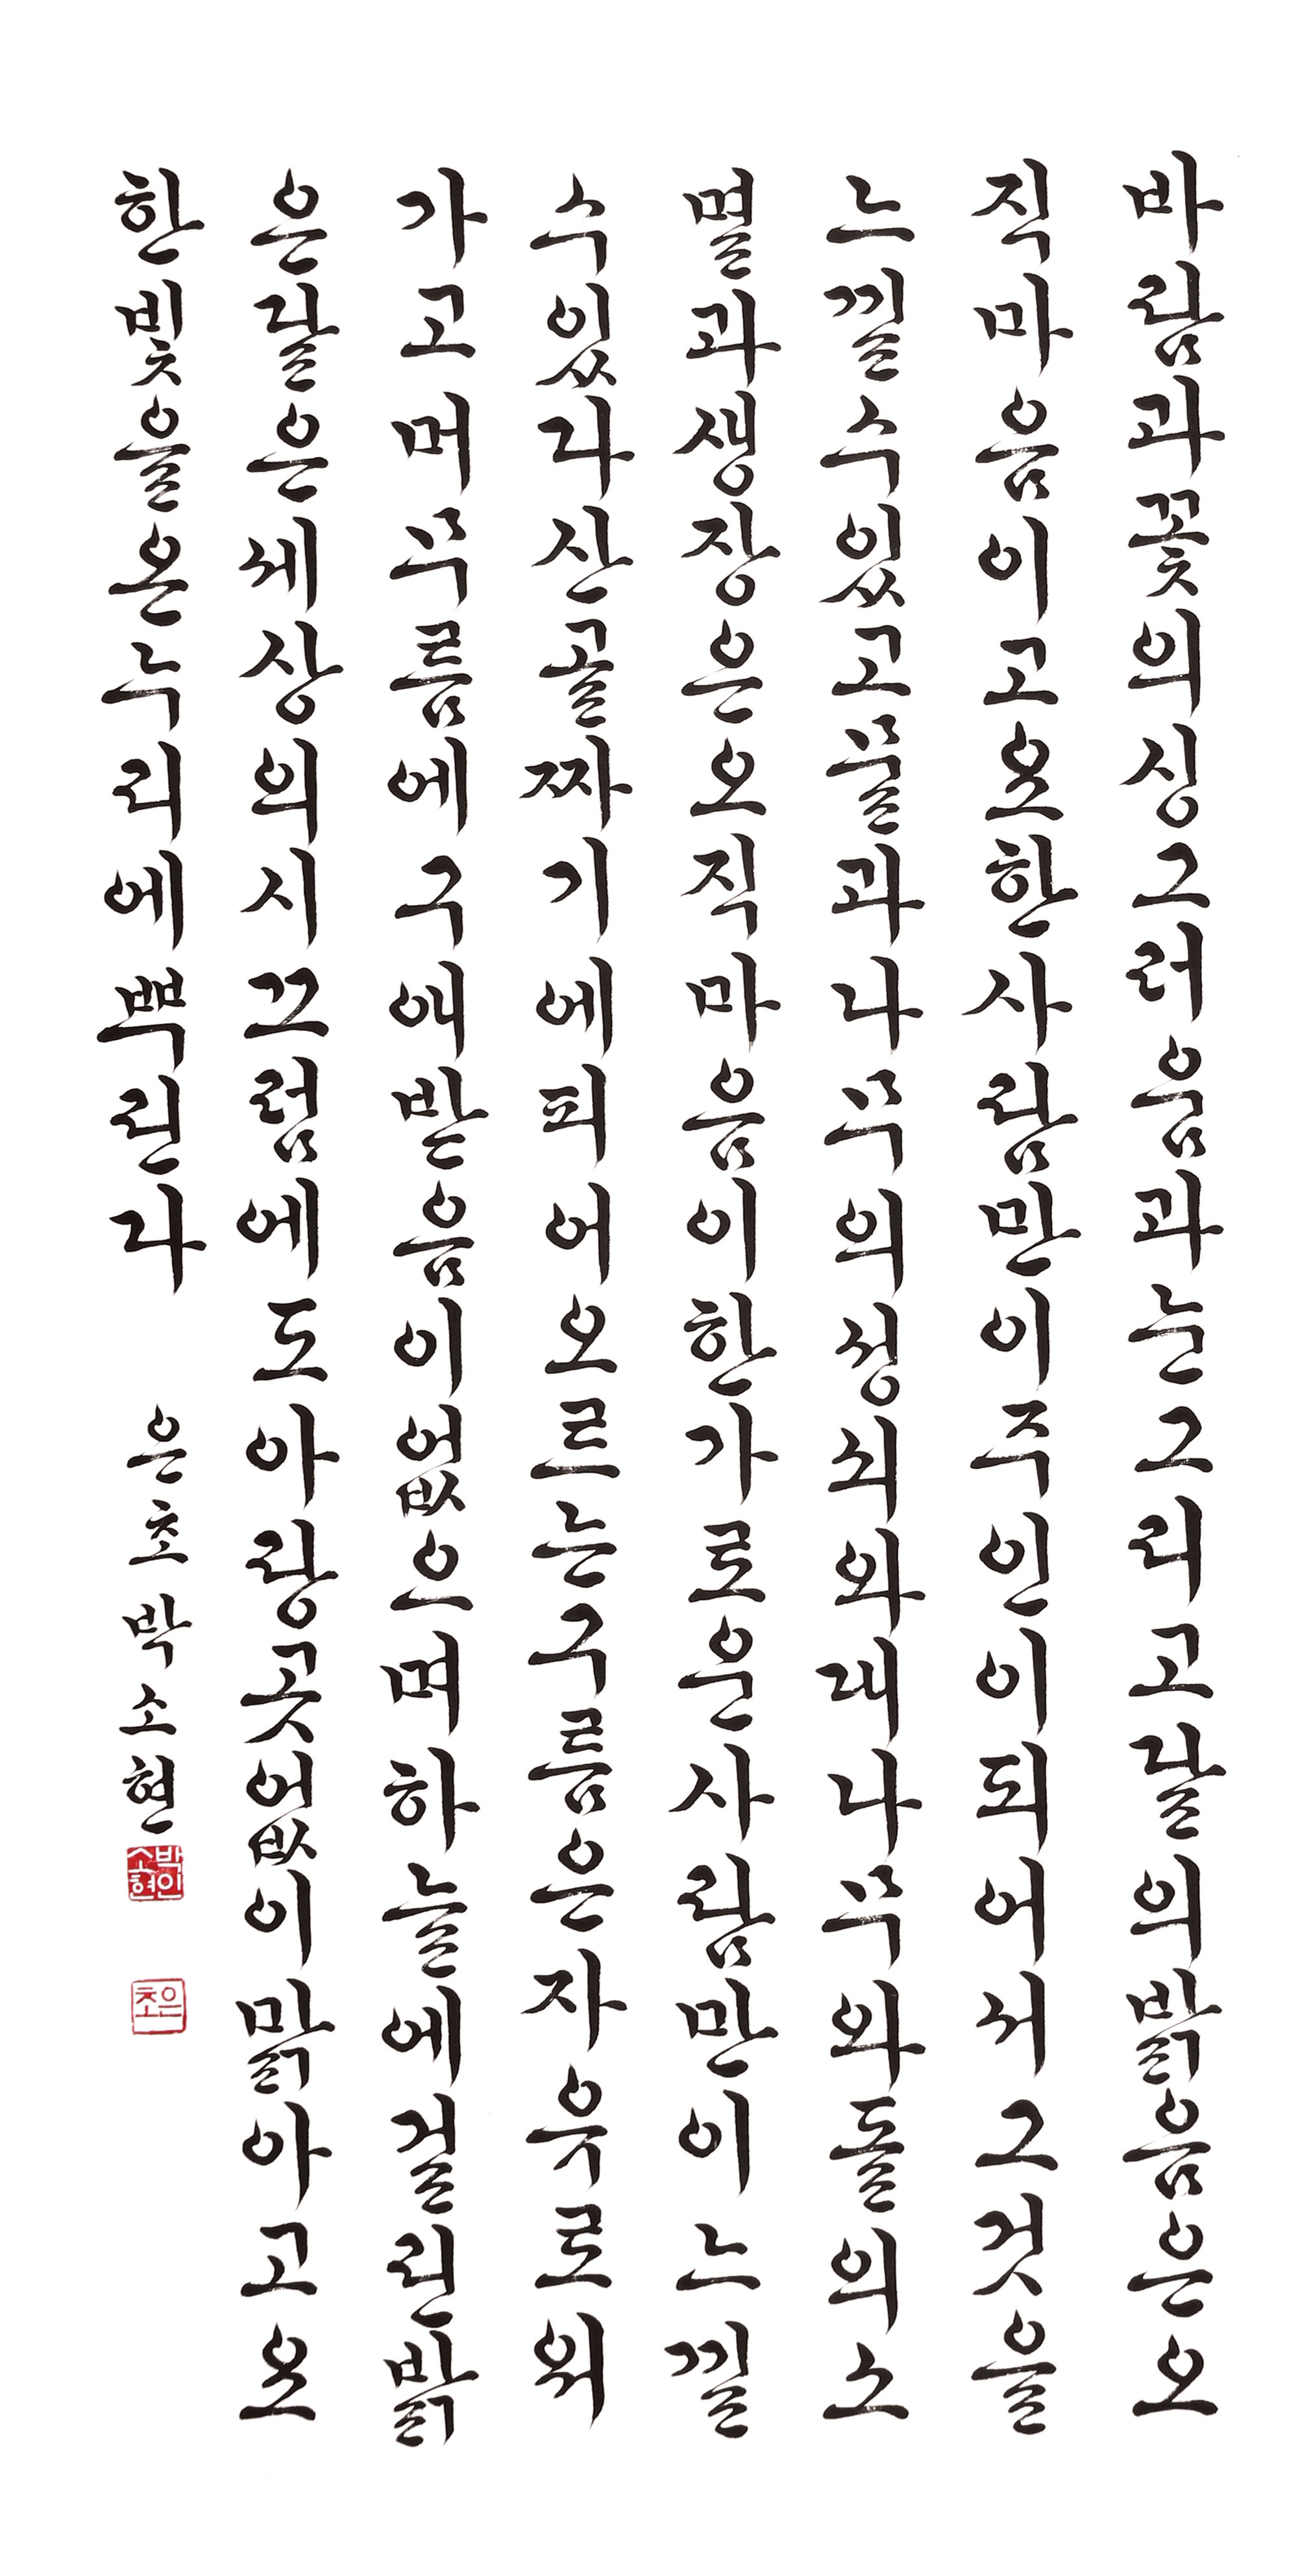 바람과꽃의싱그러움과눈그리고달의밝음은오
직마음이고요한사람만이주인이되어서그것을
느낄수있고물과나무의성쇠와대나무와돌의소
멸과생장은오직마음이한가로운사람만이느낄
수있다산골짜기에피어오르는구름은자유로워
가고머무름에구애받음이없으며하늘에걸린밝
은달은세상의시끄럼에도아랑곳없이맑아고요
한빛을온누리에뿌린다 은초박소현
박인소현
은초